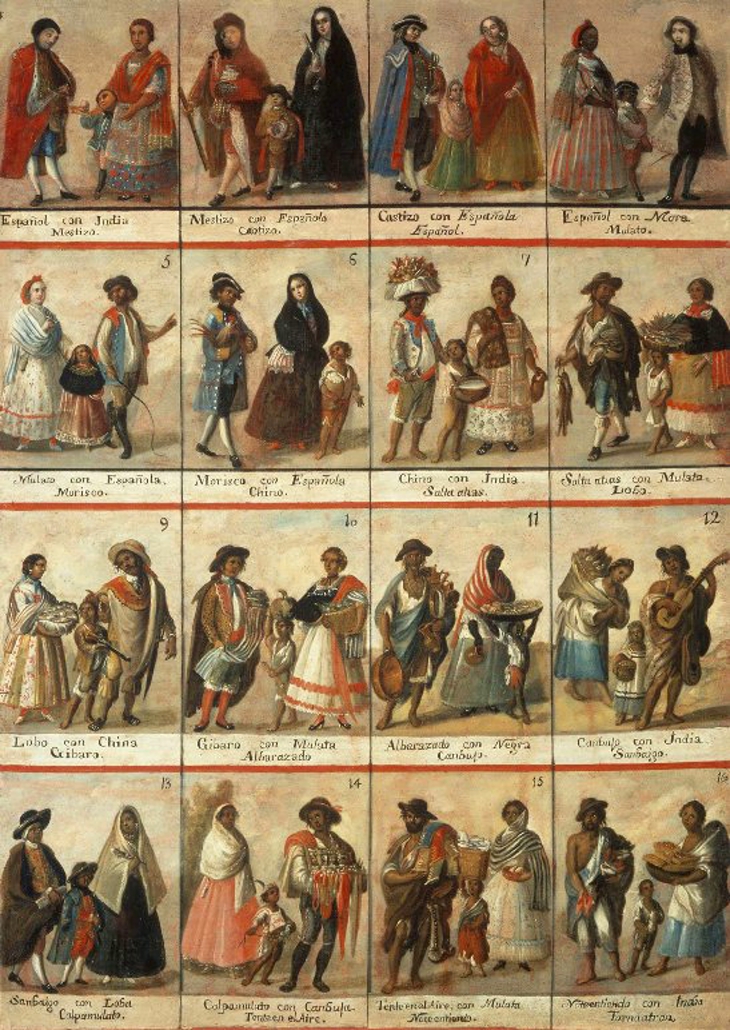 Español con India
Mestizo.
Mestizo con Española
Castizo.
Castizo con Española
Español.
Español con Mora
Mulato.
5
Mulato con Española.
Morisco.
6
Morisco con Española
Chino.
7
Chino con India
Salta atras.
Salta atras con Mulata.
Lobo.
9
Lobo con China
Gibaro.
10
Gibaro con Mulata
Albarazado
11
Albarazado con Negra
Canbujo.
12
Canbujo con India
Sanbaigo.
13
Sanbaigo con Loba
Calpamulato.
14
Calpamulato con Canbuja
Tente en el Aire.
15
Tente en el Aire, con Mulata
Noteentiendo.
16
Noteentiendo con India
Tornatras.